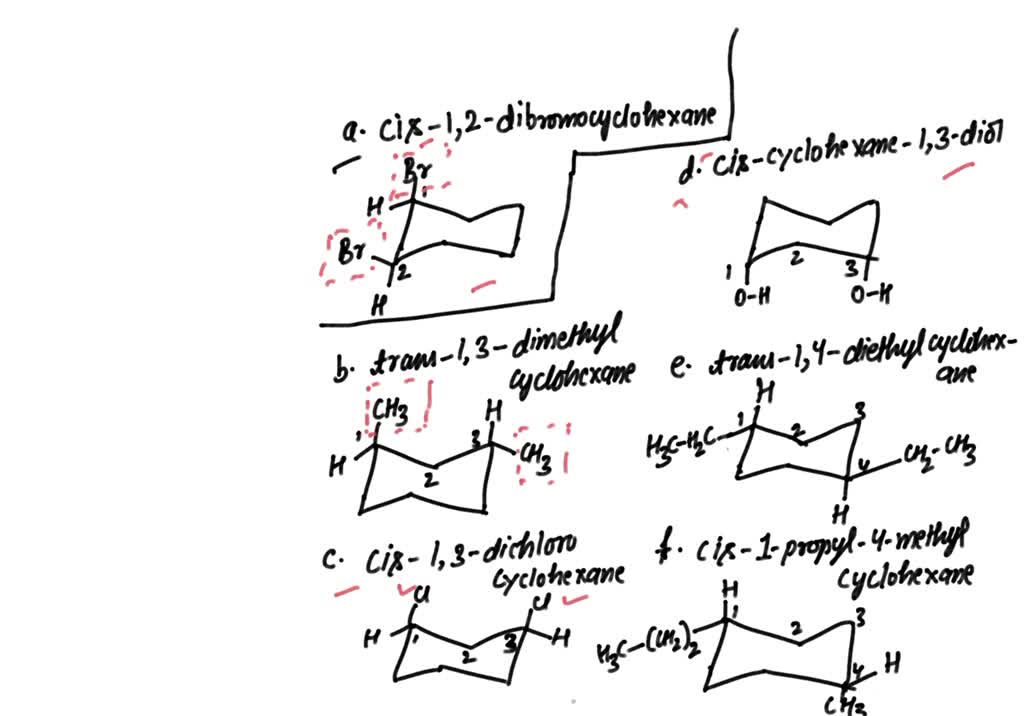 a. cis-1,2-dibromocyclohexane
Br
1
H
Br
2
H
d. cis-cyclohexane-1,3-diol
1
2
3
O-H
O-H
b. trans-1,3-dimethyl
cyclohexane
CH3
H
1
3
H
CH3
2
e. trans-1,4-diethylcyclohex-
ane
H
1
3
2
H3C-H2C
CH2-CH3
4
H
c. cis-1,3-dichloro
cyclohexane
Cl
Cl
H
1
3
H
2
f. cis-1-propyl-4-methyl
cyclohexane
H
1
3
2
H3C-(CH2)2
H
4
CH3